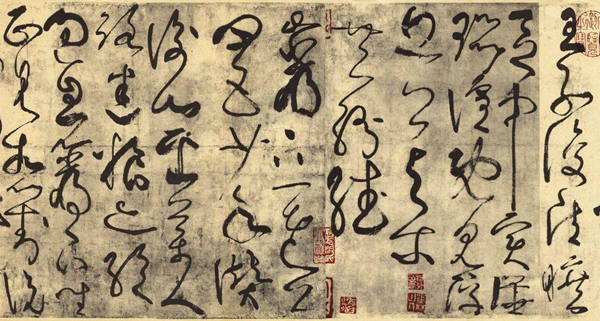 王子復清曠
區中實譁
囂喧既見浮
丘公與爾
共紛繙
巖下一老公
四五少年贊
衡山采藥人
路迷粮亦絕
過息巖下坐
正見相對說